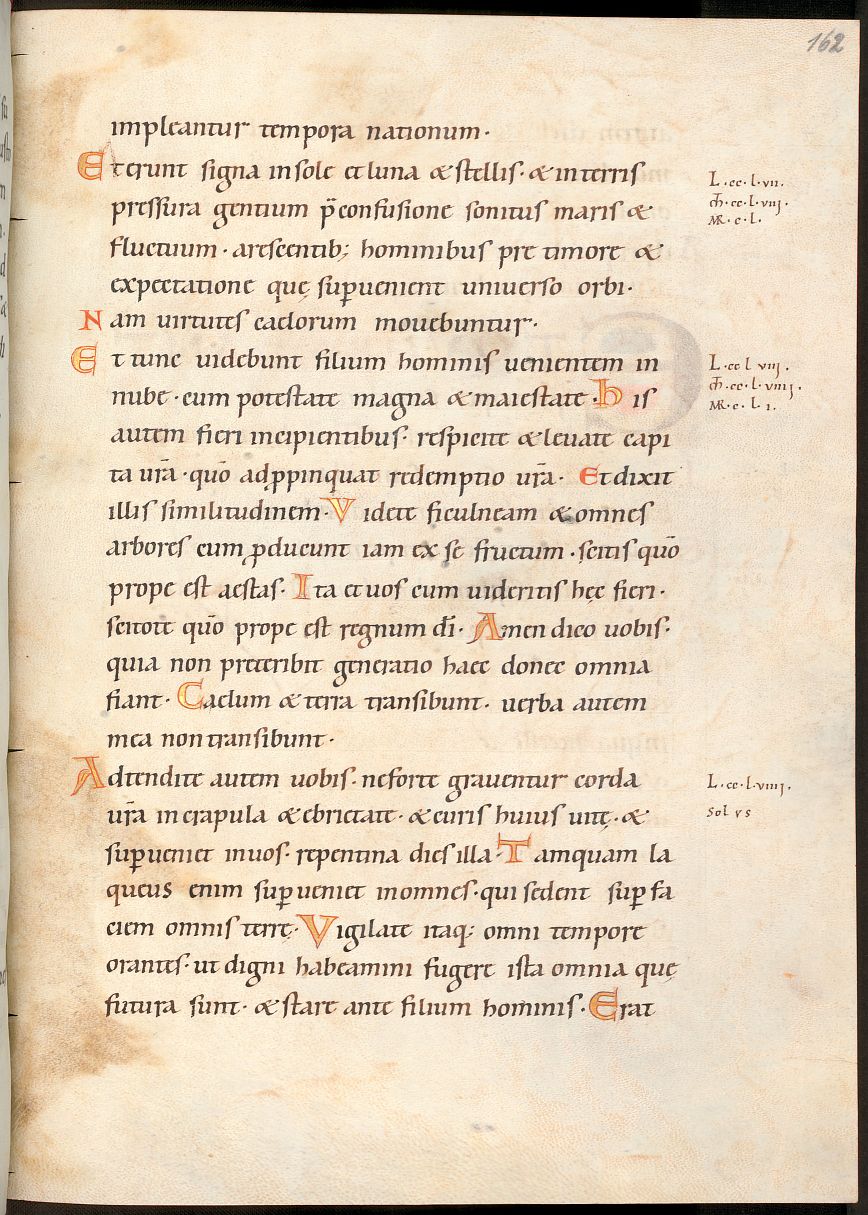 162
impleantur tempora nationum·
Et erunt signa in sole et luna & stellis· & in terris
pressura gentium p̄ confusione sonitus maris &
fluctuum· arescentib; hominibus pre timore &
expectatione quę sup̱uenient uniuerso orbi·
Nam uirtutes caelorum mouebuntur·
Et tunc uidebunt filium hominis uenientem in
nube· cum potestate magna & maiestate· His
autem fieri incipientibus· respicite & leuate capi
ta ur̄a· quō adꝓpinquat redemptio ur̄a· Et dixit
illis similitudinem· Videte ficulneam & omnes
arbores cum ꝓducunt iam ex se fructum· scitis quō
prope est aestas· Ita et uos cum uideritis hęc fieri·
scitote quō prope est regnum dī· Amen dico uobis·
quia non preteribit generatio haec donec omnia
fiant· Caelum & terra transibunt· uerba autem
mea non transibunt·
Adtendite autem uobis· ne forte grauentur corda
ur̄a in crapula & ebrietate· & curis huius uitę· &
sup̱ueniet in uos· repentina dies illa· Tamquam la
queus enim sup̱ueniet in omnes· qui sedent sup̱ fa
ciem omnis terrę· Vigilate itaq; omni tempore
orantes· ut digni habeamini fugere ista omnia quę
futura sunt· & stare ante filium hominis· Erat
L·cc·l·vii·
m̄·cc·l·viij·
MR·c·l·
L·cc l viij·
m̄·cc·l·viiij·
MR·c·l i·
L·cc·l·viiij·
Sol vs